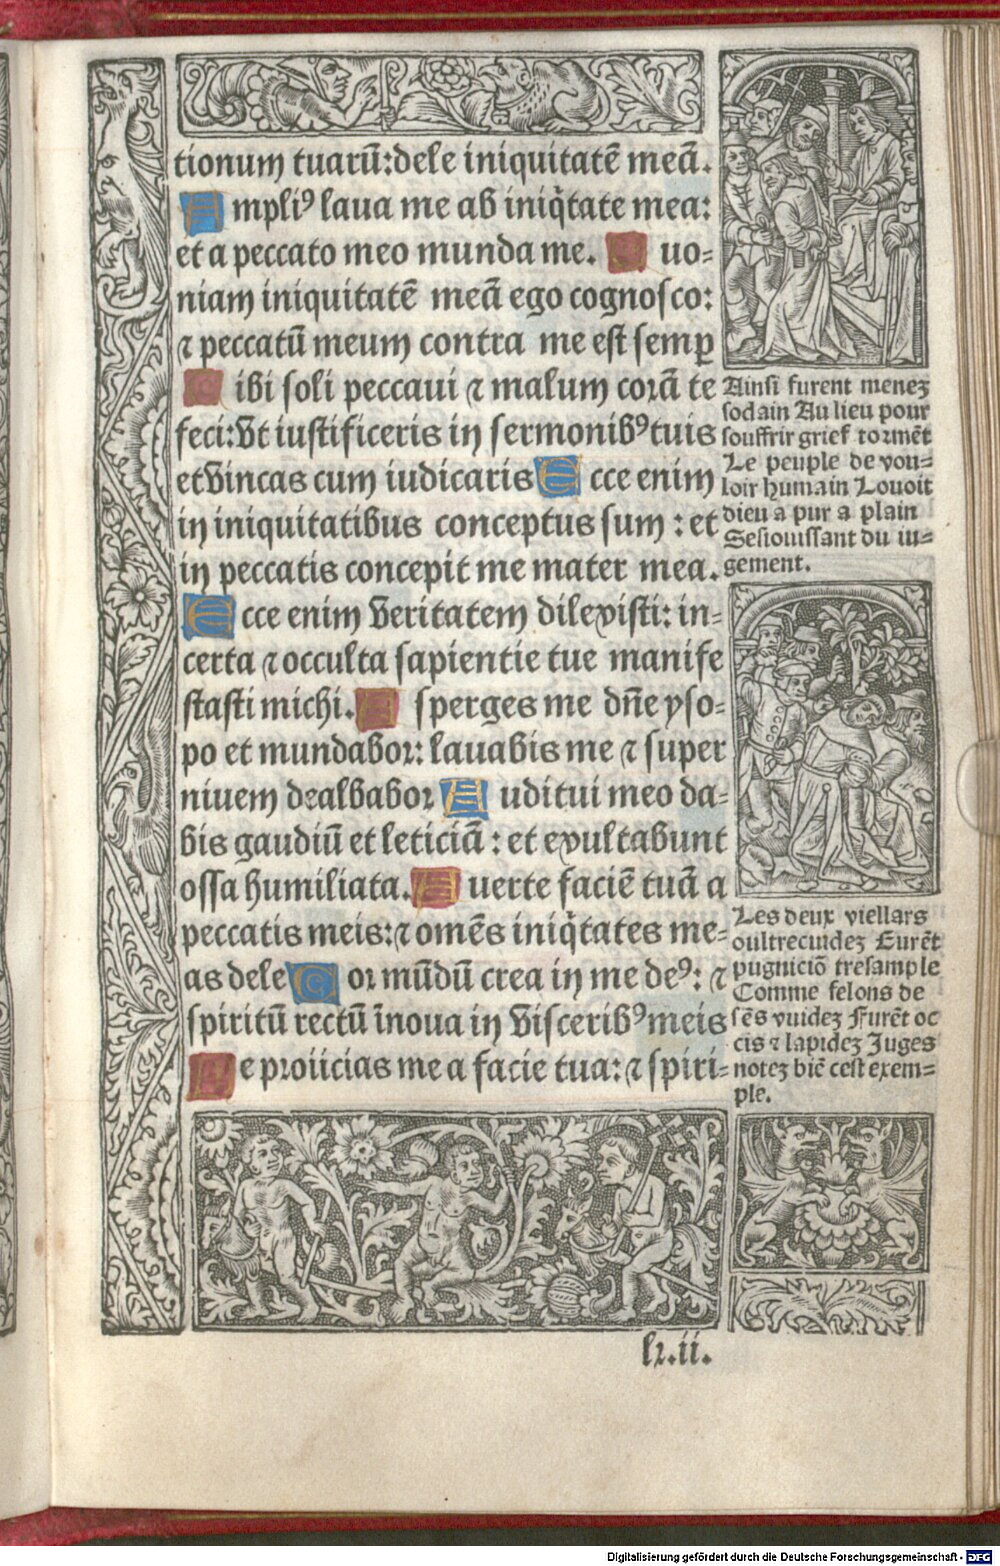 tionum tuarū:dele iniquitatē meā.
Ampliꝰ laua me ab iniq̄tate mea:
et a peccato meo munda me. Quo-
niam iniquitatē meā ego cognosco:
⁊ peccatū meum contra me est semꝑ
Tibi soli peccaui ⁊ malum corā te
feci:vt iustificeris in sermonibꝰ tuis
et vincas cum iudicaris Ecce enim
in iniquitatibus conceptus sum : et
in peccatis concepit me mater mea.
Ecce enim veritatem dilexisti: in-
certa ⁊ occulta sapientie tue manife
stasti michi. Asperges me dn̄e yso-
po et mundabor: lauabis me ⁊ super
niuem dealbabor Auditui meo da-
bis gaudiū et leticiā : et exultabunt
ossa humiliata. Auerte faciē tuā a
peccatis meis:⁊ omēs iniq̄tates me-
as dele Cor mūdū crea in me deꝰ: ⁊
spiritū rectū īnoua in visceribꝰ meis
Ne proiicias me a facie tua: ⁊ spiri-
Ainsi furent menez
sodain Au lieu pour
souffrir grief tormēt
Le peuple de vou-
loir humain Louoit
dieu a pur a plain
Sesiouissant du iu-
gement.
Les deux viellars
oultrecuidez Eurēt
pugniciō tresample
Comme felons de
sēs vuidez Furēt oc
cis ⁊ lapidez Juges
notez biē cest exem-
ple.
lz.ii.
Digitalisierung gefördert durch die Deutsche Forschungsgemeinschaft - DFG